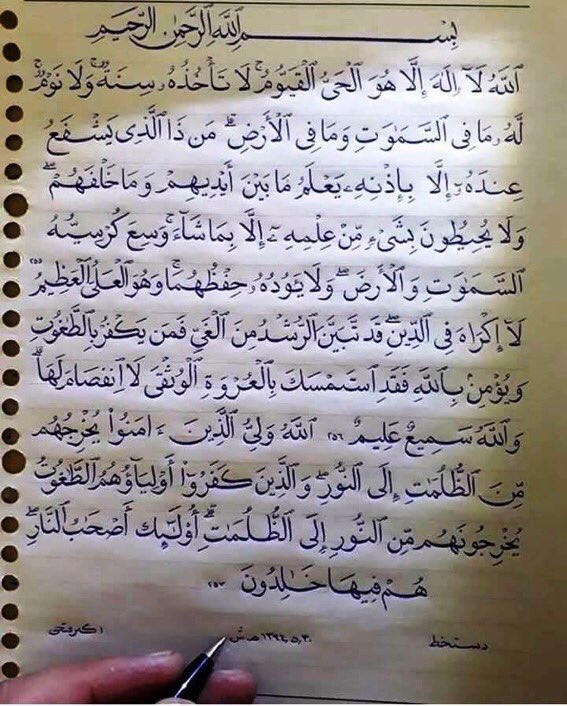 بِسْمِ اللَّهِ الرَّحْمَٰنِ الرَّحِيمِ
اَللَّهُ لَآ إِلَٰهَ إِلَّا هُوَ الْحَىُّ الْقَيُّومُ ۚ لَا تَأْخُذُهُۥ سِنَةٌ وَلَا نَوْمٌ ۚ
لَّهُۥ مَا فِى السَّمَٰوَٰتِ وَمَا فِى الْأَرْضِ ۗ مَن ذَا الَّذِى يَشْفَعُ
عِندَهُۥٓ إِلَّا بِإِذْنِهِۦ ۚ يَعْلَمُ مَا بَيْنَ أَيْدِيهِمْ وَمَا خَلْفَهُمْ ۖ
وَلَا يُحِيطُونَ بِشَىْءٍ مِّنْ عِلْمِهِۦٓ إِلَّا بِمَا شَآءَ ۚ وَسِعَ كُرْسِيُّهُ
السَّمَٰوَٰتِ وَالْأَرْضَ ۖ وَلَا يَـُٔودُهُۥ حِفْظُهُمَا ۚ وَهُوَ الْعَلِىُّ الْعَظِيمُ ٢٥٥
لَآ إِكْرَاهَ فِى الدِّينِ ۖ قَد تَّبَيَّنَ الرُّشْدُ مِنَ الْغَىِّ ۚ فَمَن يَكْفُرْ بِالطَّٰغُوتِ
وَيُؤْمِنۢ بِاللَّهِ فَقَدِ اسْتَمْسَكَ بِالْعُرْوَةِ الْوُثْقَىٰ لَا انفِصَامَ لَهَا ۗ
وَاللَّهُ سَمِيعٌ عَلِيمٌ ٢٥٦ اَللَّهُ وَلِىُّ الَّذِينَ ءَامَنُوا۟ يُخْرِجُهُم
مِّنَ الظُّلُمَٰتِ إِلَى النُّورِ ۖ وَالَّذِينَ كَفَرُوٓا۟ أَوْلِيَآؤُهُمُ الطَّٰغُوتُ
يُخْرِجُونَهُم مِّنَ النُّورِ إِلَى الظُّلُمَٰتِ ۗ أُو۟لَٰٓئِكَ أَصْحَٰبُ النَّارِ ۖ
هُمْ فِيهَا خَٰلِدُونَ ٢٥٧
دستخط ١٣٩٤,٥,٣٠ ه‍.ش